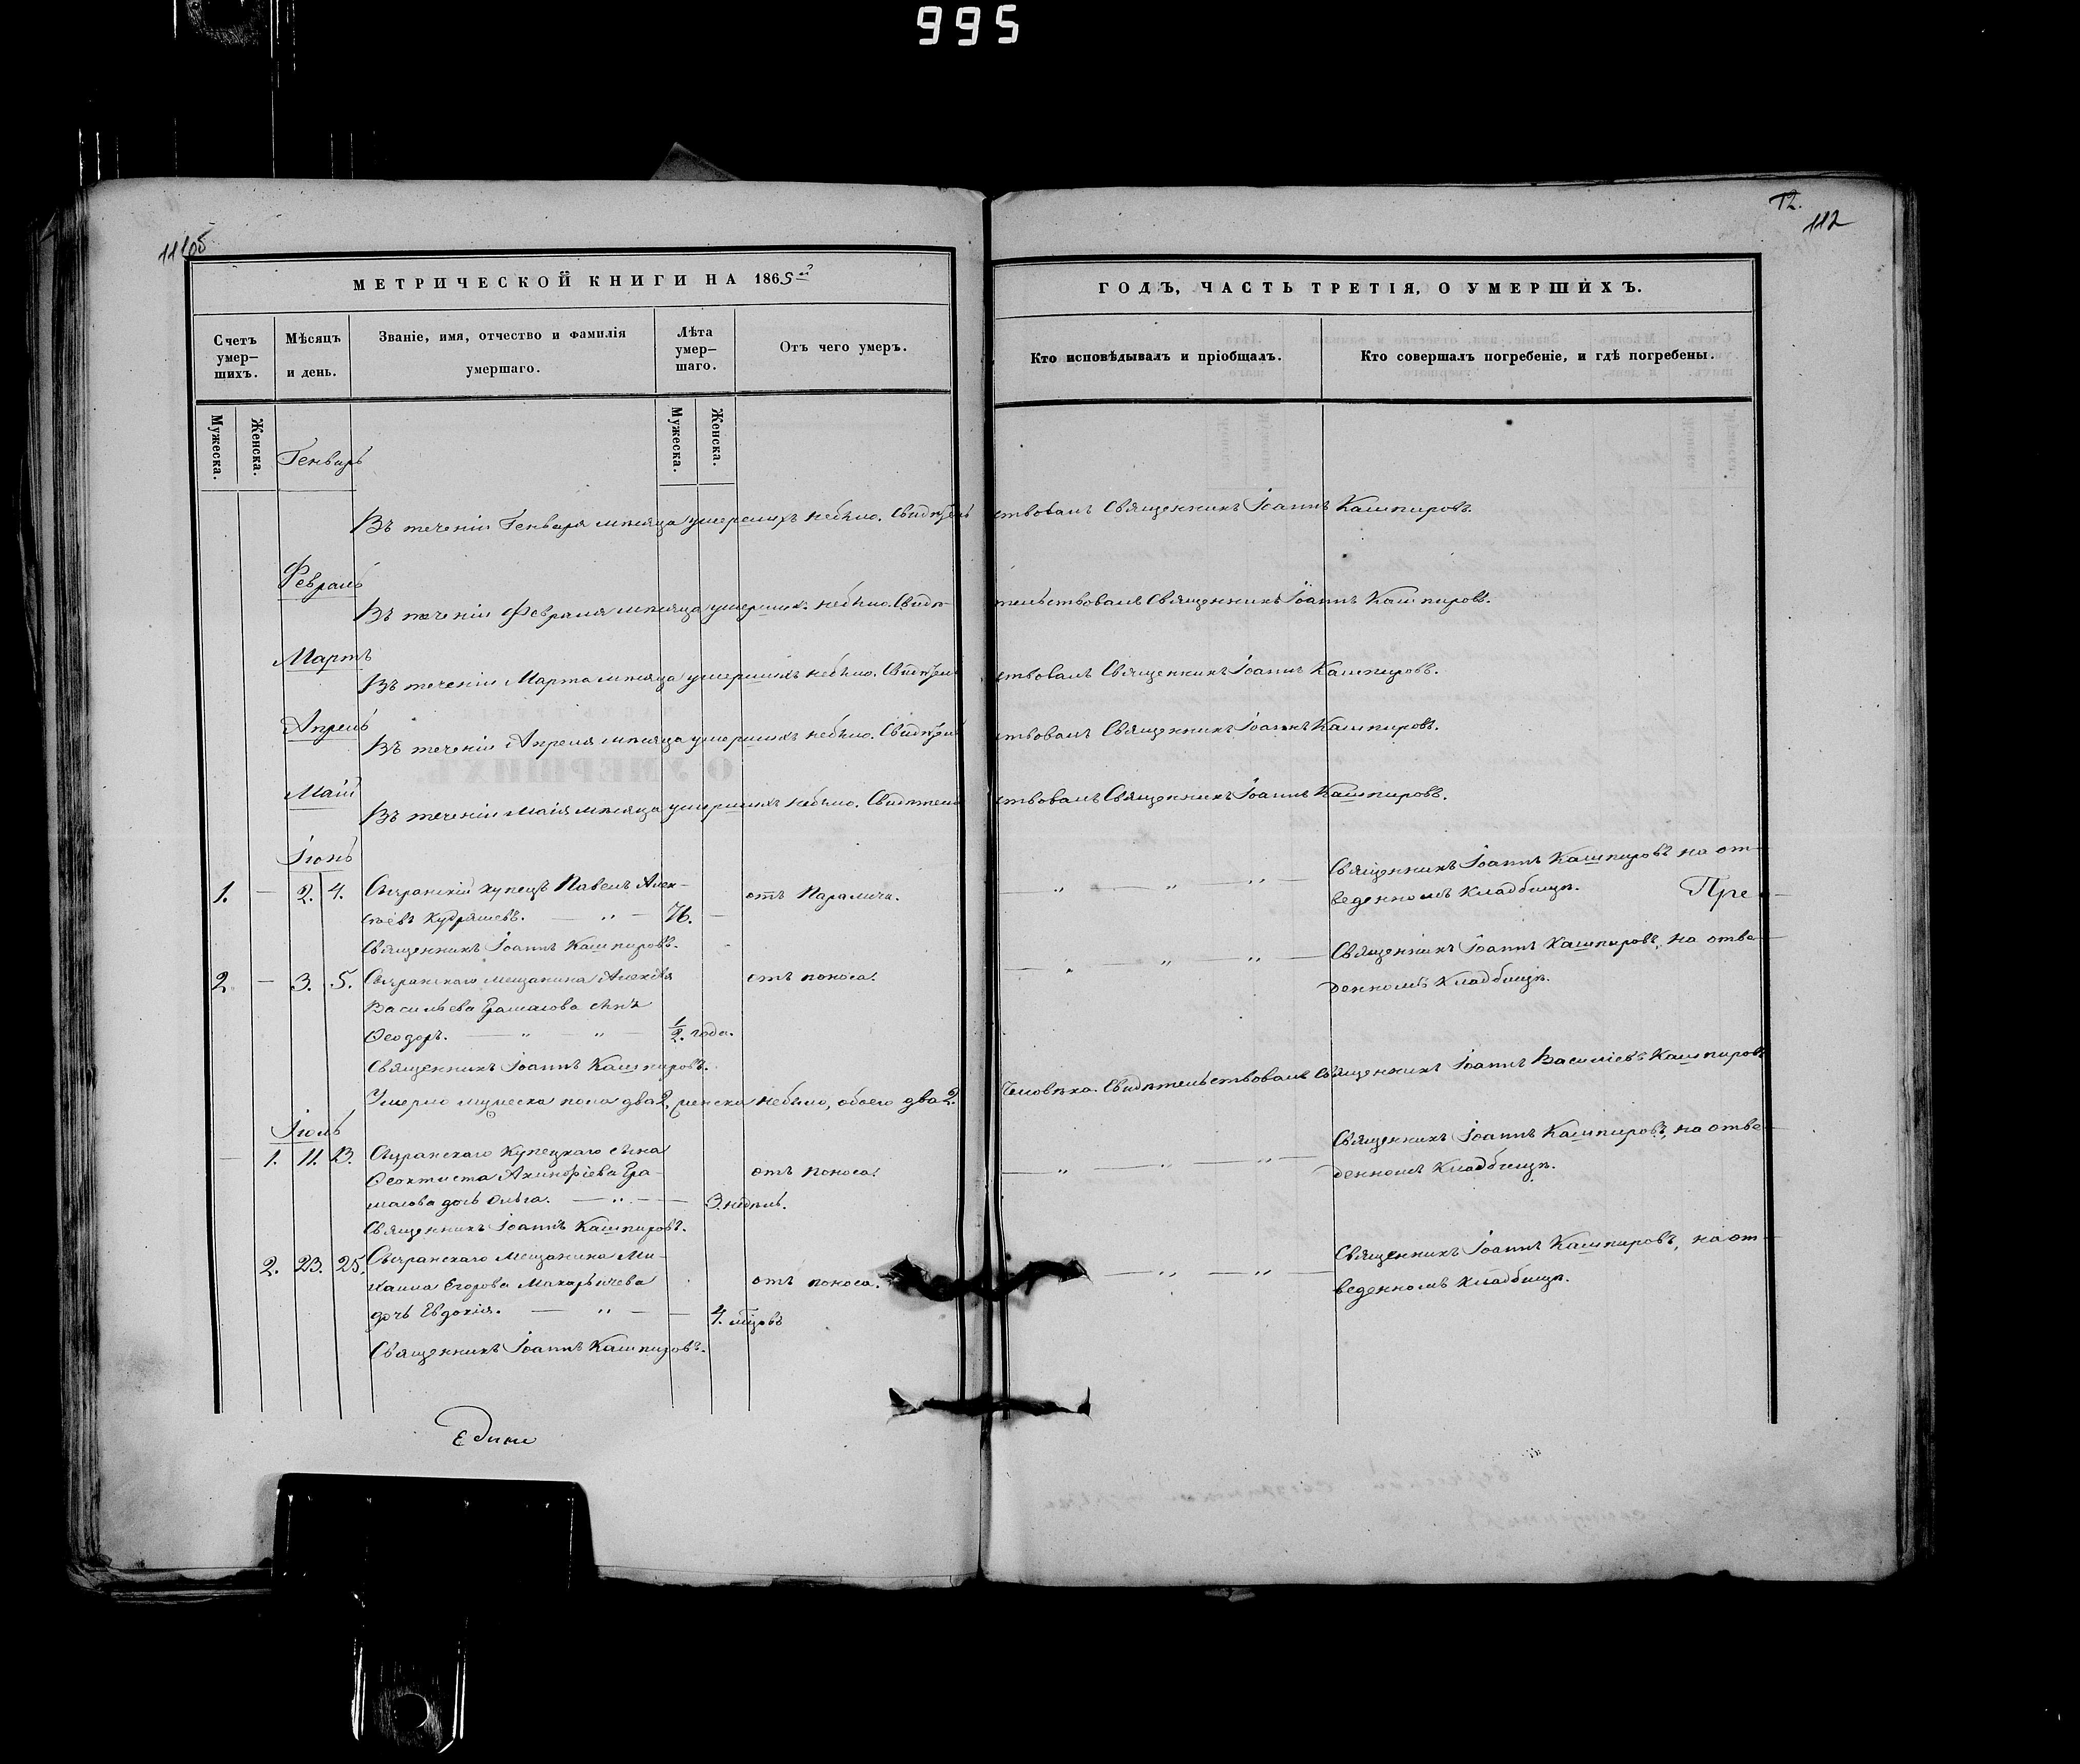 995
12.
112
МЕТРИЧЕСКОЙ КНИГИ НА 1865й
ГОДЪ, ЧАСТЬ ТРЕТІЯ, О УМЕРШИХЪ.
Счетъ умер-шихъ.
Мѣсяцъ и день.
Званіе, имя, отчество и фамилія умершаго.
Лѣта умер-шаго.
Отъ чего умеръ.
Кто исповѣдывалъ и пріобщалъ.
Кто совершалъ погребеніе, и гдѣ погребены.
Мужеска.
Женска.
Мужеска.
Женска.
Генварь
Въ теченіи Генваря мѣсяца умершихъ небыло. Свидѣтель ствовалъ Священникъ Іоаннъ Кашпировъ.
Февраль
Въ теченіи Февраля мѣсяца умершихъ небыло. Свидѣ- тельствовалъ Священникъ Іоаннъ Кашпировъ.
Мартъ
Въ теченіи Марта мѣсяца умершихъ небыло. Свидѣтель ствовалъ Священникъ Іоаннъ Кашпировъ.
Апрель
Въ теченіи Апреля мѣсяца умершихъ небыло. Свидѣтель ствовалъ Священникъ Іоаннъ Кашпировъ.
Маій
Въ теченіи Маія мѣсяца умершихъ небыло. Свидѣтель ствовалъ Священникъ Іоаннъ Кашпировъ.
Іюнь
1. — 2. 4. Сызранскій купецъ Павелъ Алек-
сѣевъ Кудряшевъ. — „ — 76. —
отъ Паралича.
Священникъ Іоаннъ Кашпировъ на от-
веденномъ Кладбищѣ. Пре-
Священникъ Іоаннъ Кашпировъ.
2 — 3. 5. Сызранскаго мещанина Алексѣя
Васильева сынъ
Ѳеодоръ. — „ — „ — 1/2. года.
отъ поноса.
Священникъ Іоаннъ Кашпировъ, на отве-
денномъ Кладбищѣ.
Священникъ Іоаннъ Кашпировъ.
Умерло мужеска пола два 2, женска небыло, обоего два 2. Человѣка. Свидѣтельствовалъ Священникъ Іоаннъ Василіевъ Кашпировъ
Іюль
— 1. 11. 13. Сызранскаго Купецкаго сына
Ѳеоктиста
дочь Ольга. — „ — — 3. недѣль.
отъ поноса.
Священникъ Іоаннъ Кашпировъ, на отве-
денномъ Кладбищѣ.
Священникъ Іоаннъ Кашпировъ.
2. 23. 25. Сызранскаго Мещанина Ми-
хаила Егорова Макарычева
дочь Евдокія. — „ — — 4. мѣсяцовъ
отъ поноса.
Священникъ Іоаннъ Кашпировъ, на от-
веденномъ Кладбищѣ.
Священникъ Іоаннъ Кашпировъ.